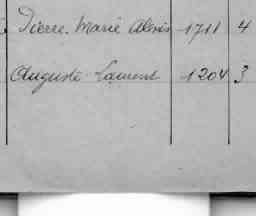 Pierre-Marie Alexis 1711 4
Auguste Laurent 1204 3